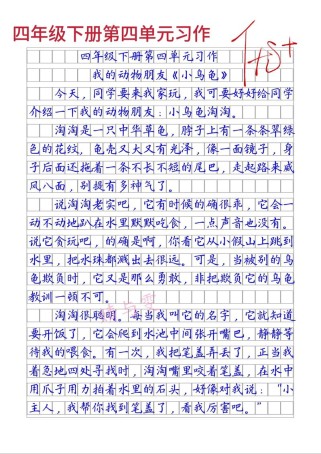 四年级下册第四单元习作
优+
四年级下册第四单元习作
我的动物朋友《小乌龟》
今天，同学要来我家玩，我可要好好给同学
介绍一下我的动物朋友：小乌龟淘淘。
淘淘是一只中华草龟，脖子上有一条条翠绿
色的花纹，龟壳又大又有光泽，像一面镜子，身
子后面还拖着一条不长不短的尾巴，走起路来威
风八面，别提有多神气了。
说淘淘老实吧，它有时候的确很乖，它会一
动不动地趴在水里默默吃食，一点声音也没有。
说它贪玩吧，的确是啊，你看它从小假山上跳到
水里，把水珠都溅出去很远。可是，当被别的乌
龟欺负时，它又是那么勇敢，非把欺负它的乌龟
教训一顿不可。
淘淘很聪明。每当我叫它的名字，它就知道
要开饭了，它会爬到水池中间张开嘴巴，静静等
待我的喂食。有一次，我把笔盖弄丢了，正当我
着急地四处寻找时，淘淘嘴里咬着笔盖，在水中
用爪子用力拍着水里的石头，好像对我说：“小
主人，我帮你找到笔盖了，看我厉害吧。”